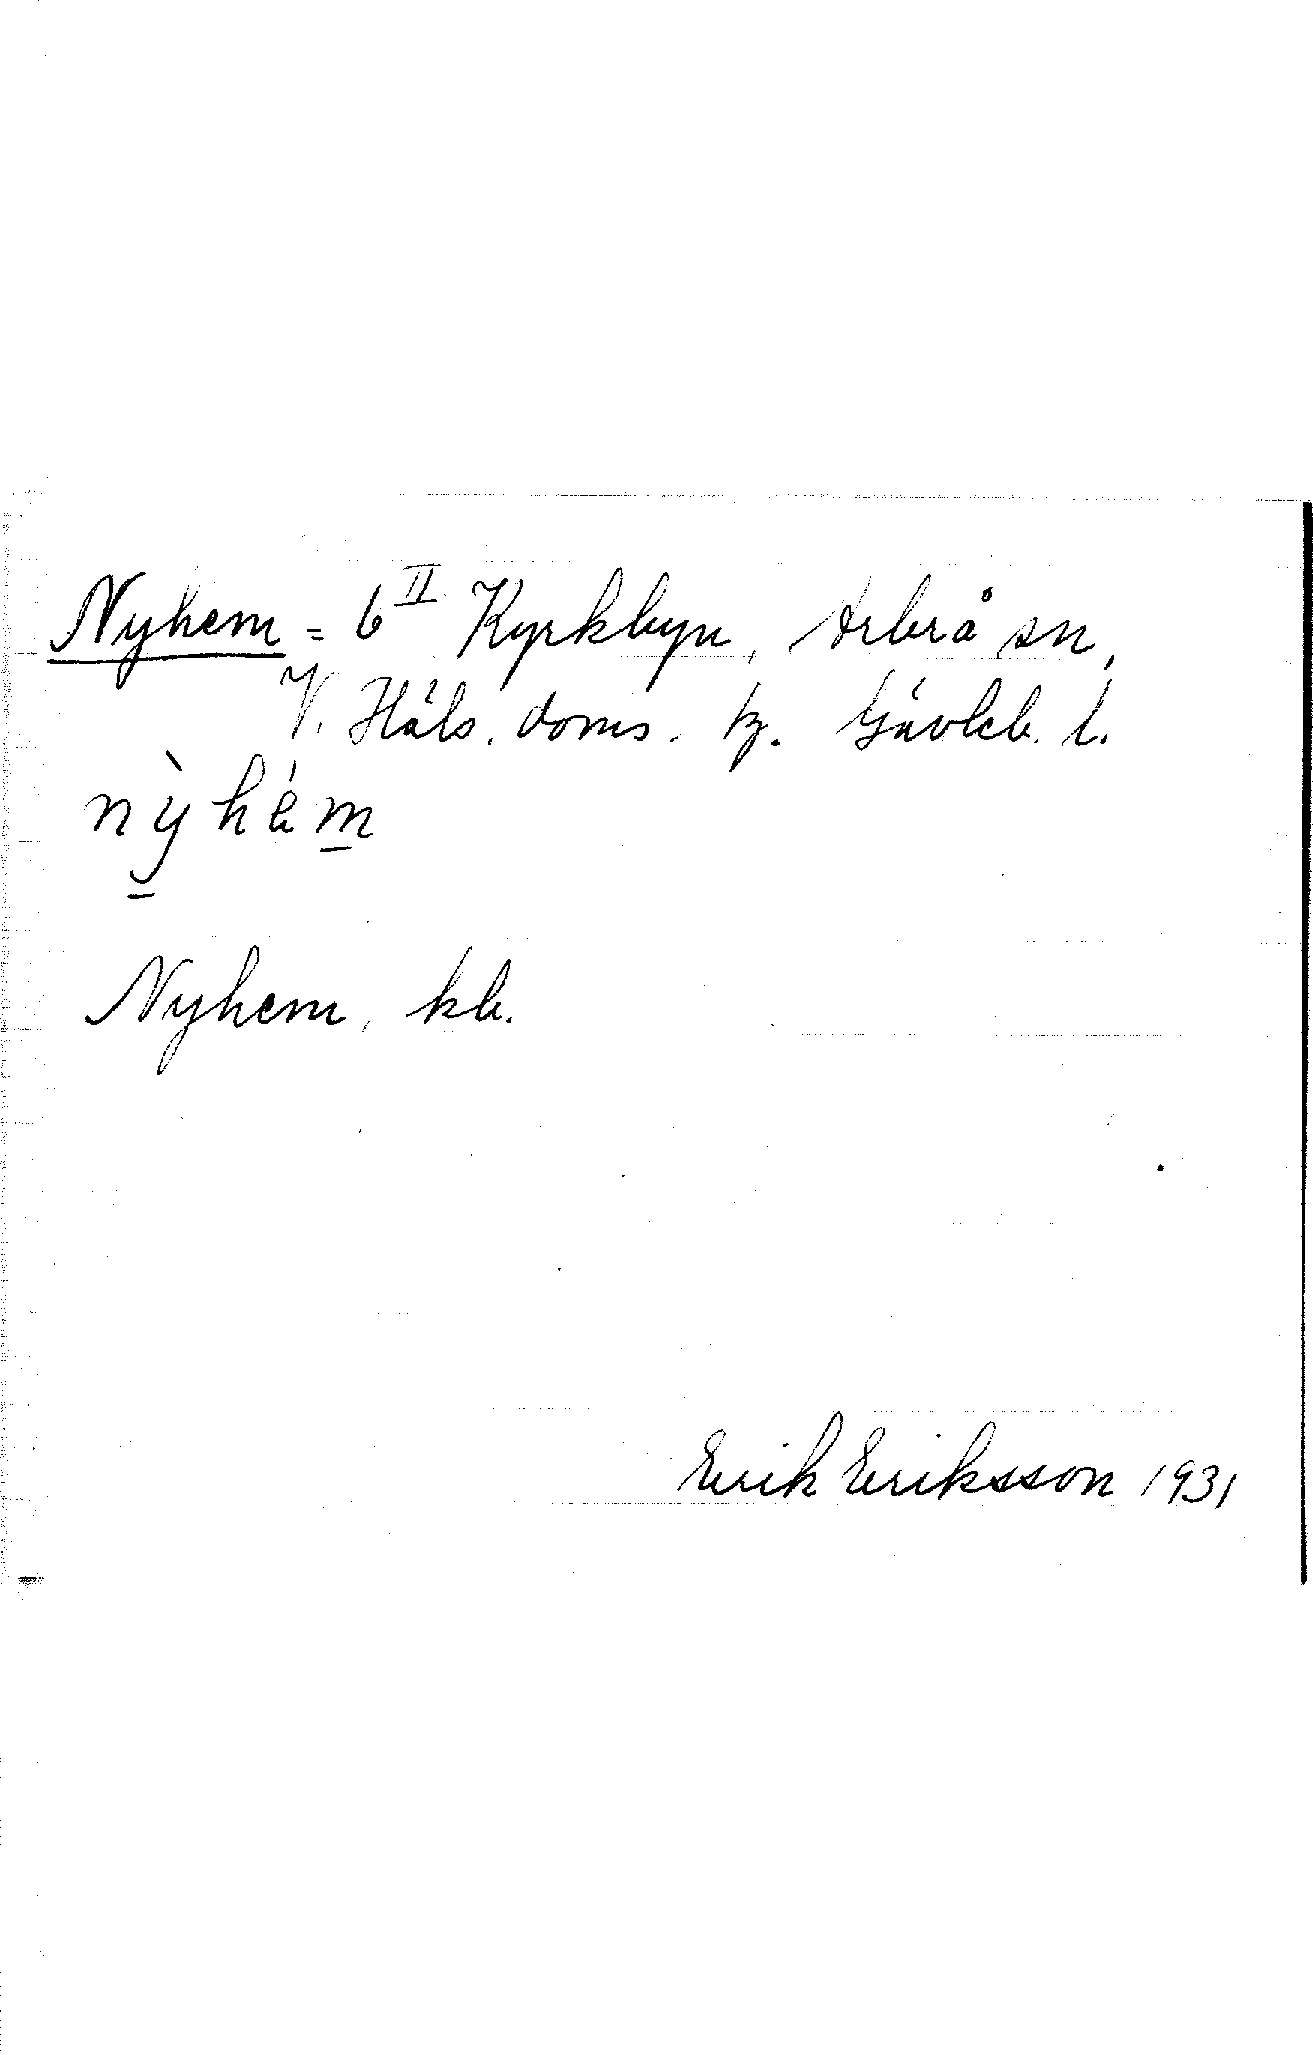 Nyhem = 6 II Kyrkbyn, Arbrå sn,
V. Häls. doms. tg. Gävleb. l.
nỳhém
Nyhem, kb.
Erik Eriksson 1931